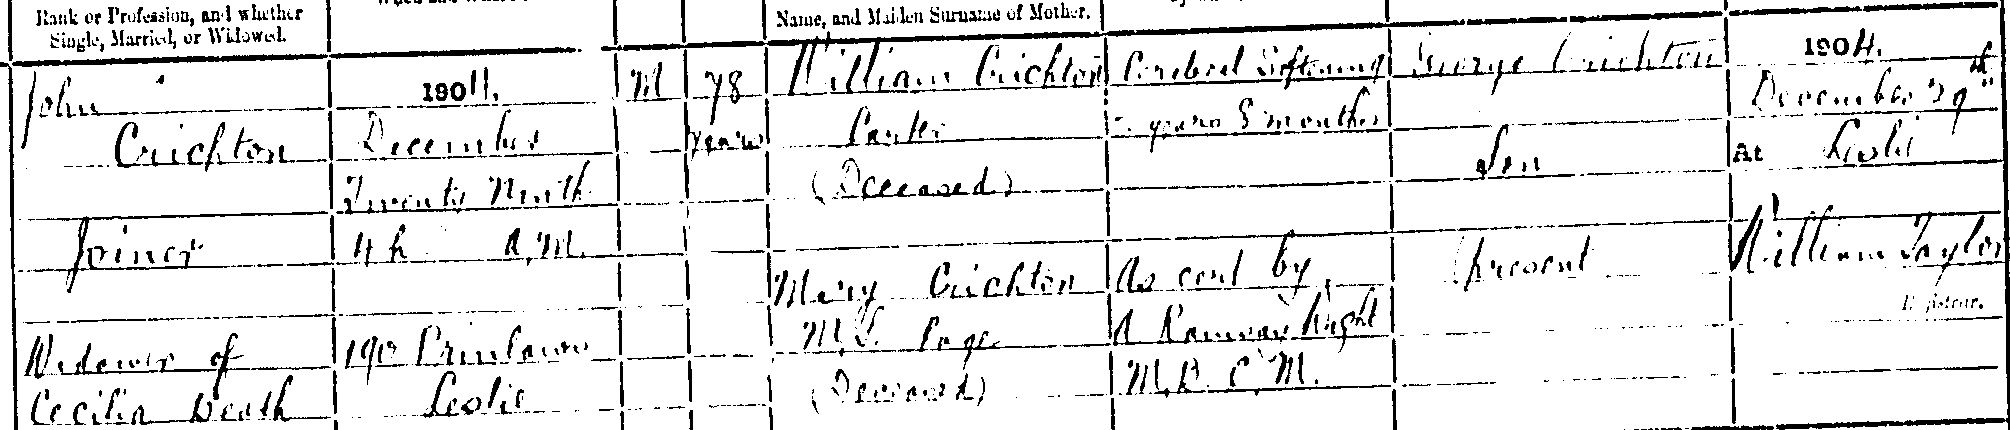 Rank or Profession, and whether
Single, Married, or Widowed.
Name, and Maiden Surname of Mother.
John
Crichton
Joiner
Widower of
Cecilia Death
1904,
December
Twenty Ninth
4 h A.M.
190 Prinlaws
Leslie
M
78
years
William Crichton
Carter
(Deceased)
Mary Crichton
M.S. Page
(Deceased)
Cerebral Softening
years 8 months
As cert by
A Ramsay Wight
M.B. C.M.
George Crichton
Son
(present
1904.
December 29th
At Leslie
William Taylor
Registrar.